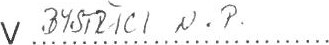 V BYSTŘICI N. P.